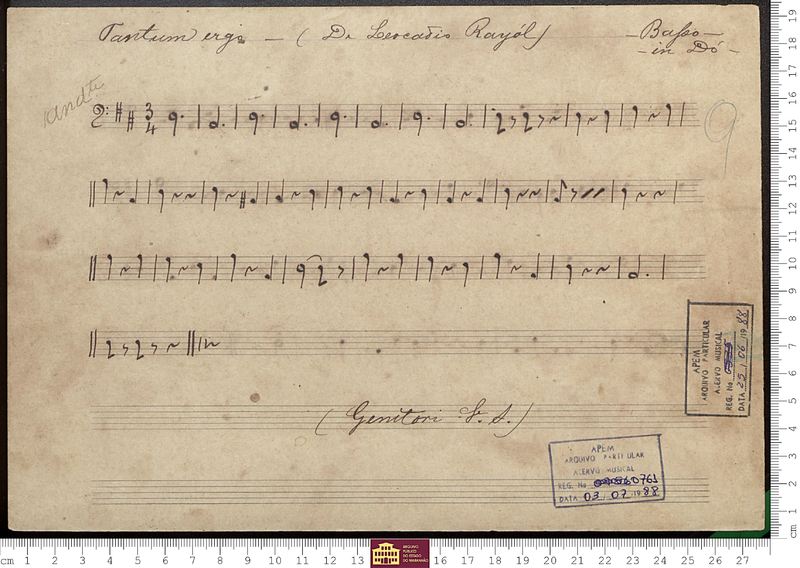 Tantum ergo — ( De Leocadio Rayól ) — Basso —
— in Dó —
Andte
3
4
9
( Genitori F. S. )
APEM
ARQUIVO PARTICULAR
ACERVO MUSICAL
REG. No
DATA 25 / 06 / 19 88
APEM
ARQUIVO PARTICULAR
ACERVO MUSICAL
REG. No 0761
DATA 03 . 07 / 19 88
ARQUIVO
PÚBLICO
DO ESTADO
DO MARANHÃO
cm 1 2 3 4 5 6 7 8 9 10 11 12 13 14 15 16 17 18 19 20 21 22 23 24 25 26 27
cm 1 2 3 4 5 6 7 8 9 10 11 12 13 14 15 16 17 18 19